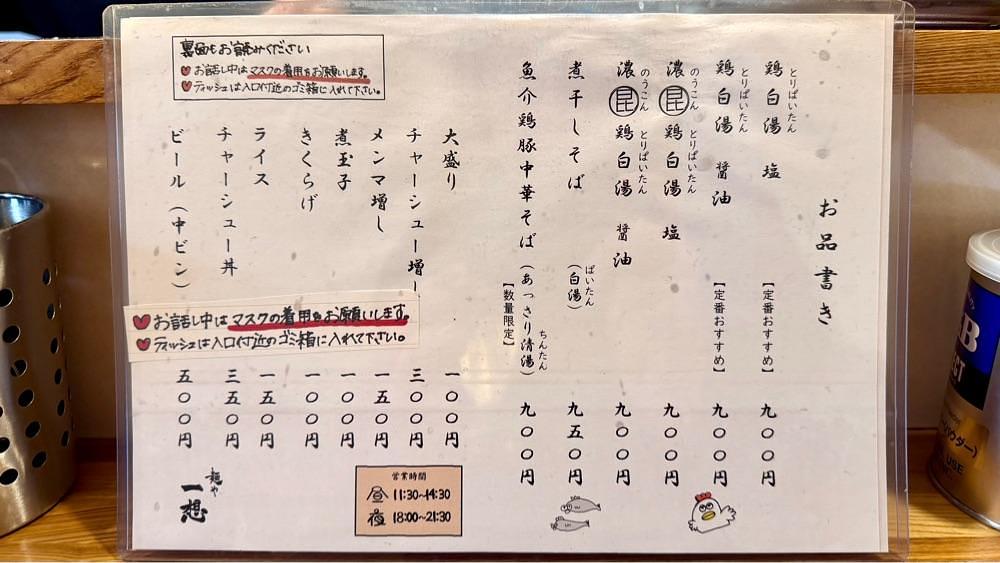 お品書き
鶏白湯 塩 【定番おすすめ】 九〇〇円
とりぱいたん
鶏白湯 醤油 【定番おすすめ】 九〇〇円
とりぱいたん
濃昆鶏白湯 塩 九〇〇円
のうこん とりぱいたん
濃昆鶏白湯 醤油 九〇〇円
のうこん とりぱいたん
煮干しそば (白湯) 九五〇円
ぱいたん
魚介鶏豚中華そば (あっさり清湯) 九〇〇円
ちんたん
【数量限定】
大盛り 一〇〇円
チャーシュー増し 三〇〇円
メンマ増し 一五〇円
煮玉子 一〇〇円
きくらげ 一〇〇円
ライス 一五〇円
チャーシュー丼 三五〇円
ビール (中ビン) 五〇〇円
裏面もお読みください
お話し中はマスクの着用をお願いします。
ティッシュは入口付近のゴミ箱に入れて下さい。
お話し中はマスクの着用をお願いします。
ティッシュは入口付近のゴミ箱に入れて下さい。
営業時間
昼 11:30~14:30
夜 18:00~21:30
麺や
一想
B
ECT
パウダー)
USE